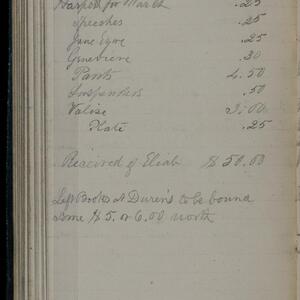 Harpers for March .25
Speeches .25
Jane Eyre .25
Genevieve .30
Pants 4.50
Suspenders .50
Valise 3.00
Plate .25
Received of Eliab $50.00
Left Books at Duren's to be bound
some $5. or 6.00 worth